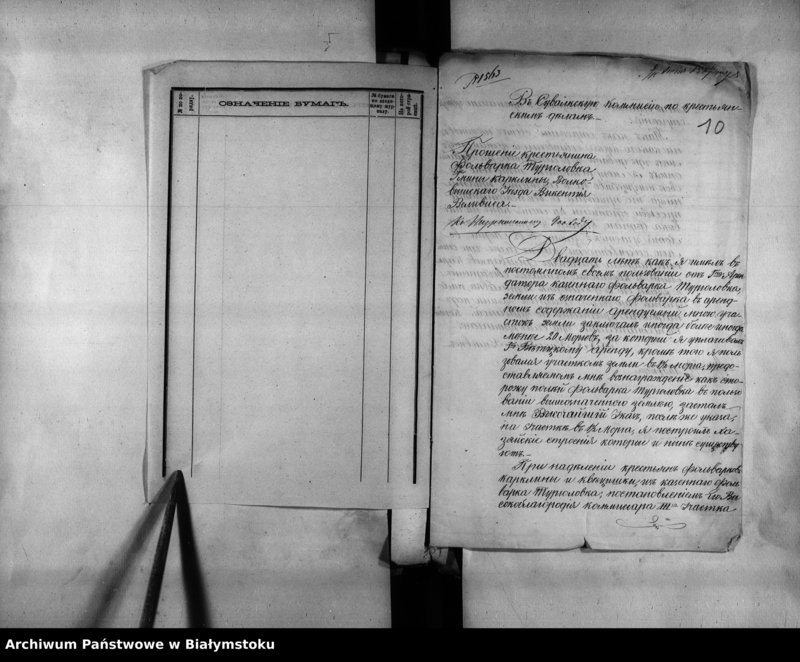 № по по-
рядку.
ОЗНАЧЕНІЕ БУМАГЪ.
№ бумаги
по входя-
щему жур-
налу.
На кото-
рой стра-
ницѣ.
№ 1563
10
Въ Сувалкскую Коммисію по крестьян-
скимъ дѣламъ.
Прошеніе крестьянина
Фольварка Турголовка
Гмины Карклины, Волко-
вышскаго Уѣзда Викентія
Валивиса.
Двадцать лѣтъ какъ я имѣлъ въ
постоянномъ своемъ пользованіи отъ Арен-
датора казеннаго фольварка Турголовка,
земли изъ сказаннаго фольварка въ аренд-
номъ содержаніи арендуемый мною уча-
стокъ земли заключалъ иногда болѣе иногда
менѣе 20 морговъ, за который я уплачивалъ
аренду, кромѣ того я поль-
зовался участкомъ земли въ 1½ морга, предо-
ставляемомъ мнѣ вознагражденіе какъ сто-
рожу полей фольварка Турголовка въ пользо-
ваніи вышеозначенною землею, засталъ
мнѣ Высочайшій Указъ, послѣ же указа,
на участкѣ въ 1½ морга, я построилъ хо-
зяйскіе строенія которые и нынѣ существу-
ютъ.
При надѣленіи крестьянъ фольварковъ
Карклины и изъ казеннаго фоль-
варка Турголовка, постановленіемъ Его Вы-
сокоблагородія Коммисара участка
Archiwum Państwowe w Białymstoku